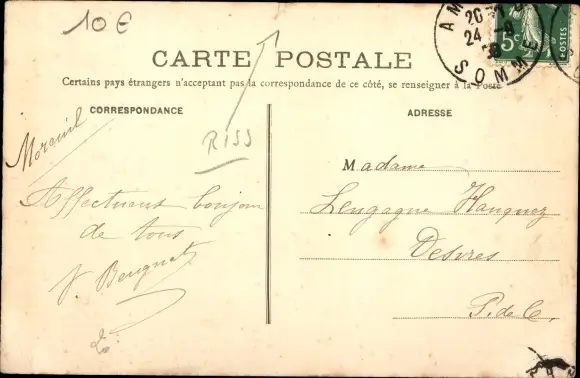 10 €
CARTE POSTALE
Certains pays étrangers n'acceptant pas la correspondance de ce côté, se renseigner à la Poste
CORRESPONDANCE
ADRESSE
AM
20
24
SOMME
5c
POSTES
Moreuil
R155
Affectueux bonjour
de tous
Madame
Lengagne Hanquez
Desvres
P. de C.